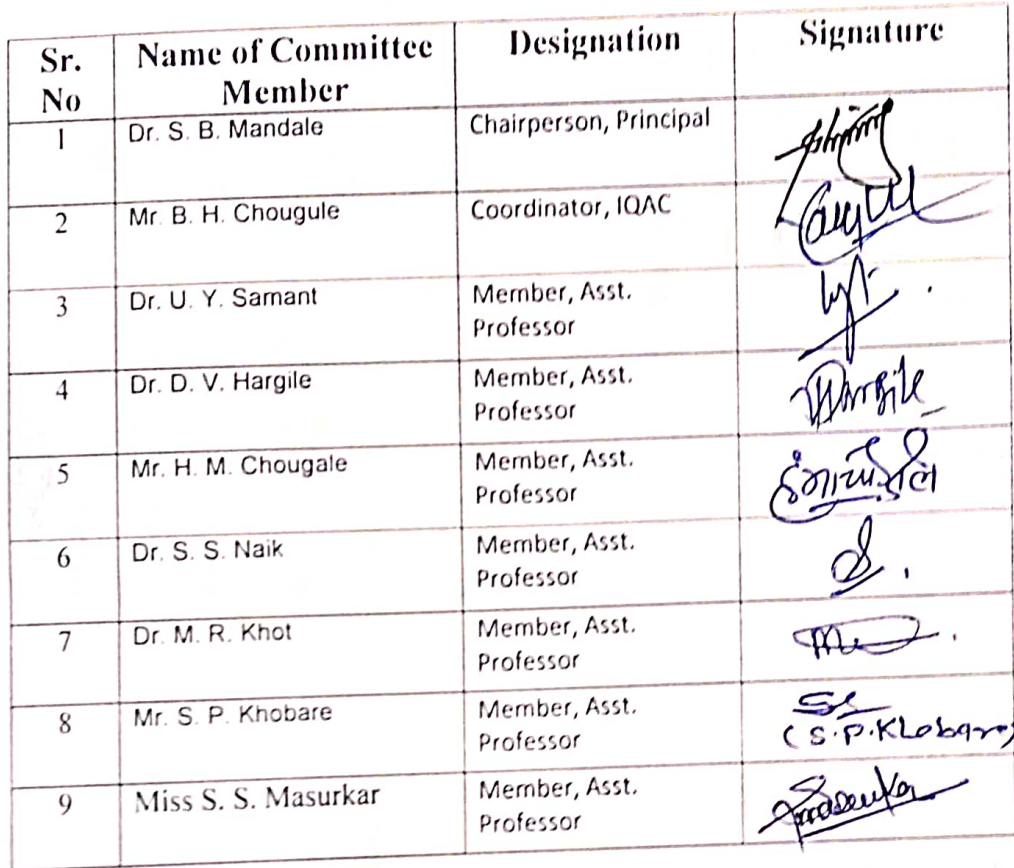 Sr. No
Name of Committee Member
Designation
Signature
1
Dr. S. B. Mandale
Chairperson, Principal
2
Mr. B. H. Chougule
Coordinator, IQAC
3
Dr. U. Y. Samant
Member, Asst.
Professor
4
Dr. D. V. Hargile
Member, Asst.
Professor
Hargile
5
Mr. H. M. Chougale
Member, Asst.
Professor
6
Dr. S. S. Naik
Member, Asst.
Professor
7
Dr. M. R. Khot
Member, Asst.
Professor
8
Mr. S. P. Khobare
Member, Asst.
Professor
(S.P.Khobare)
9
Miss S. S. Masurkar
Member, Asst.
Professor